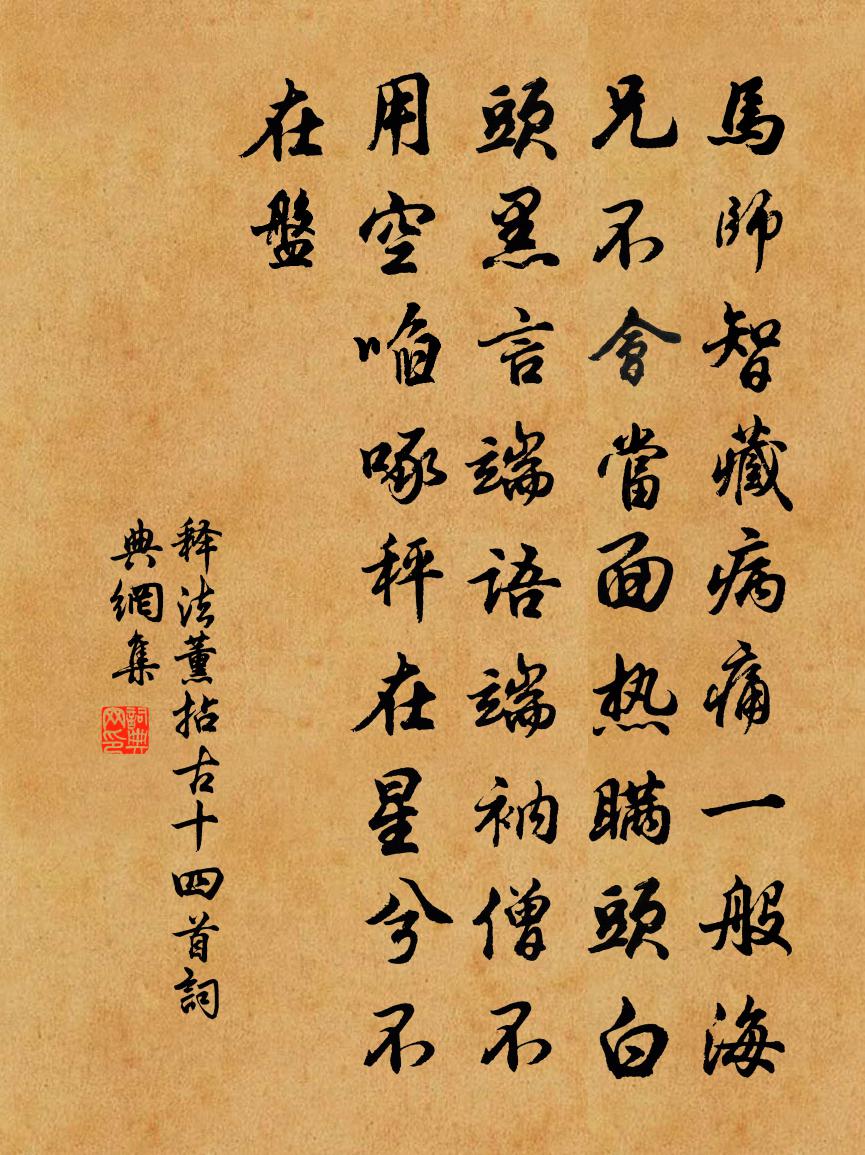 馬師智藏病痛一般海
兄不會當面热瞞頭白
頭黑言端語端衲僧不
用空啗啄秤在星兮不
在盤
释法薰拈古十四首詞
典網集
詞典
网印